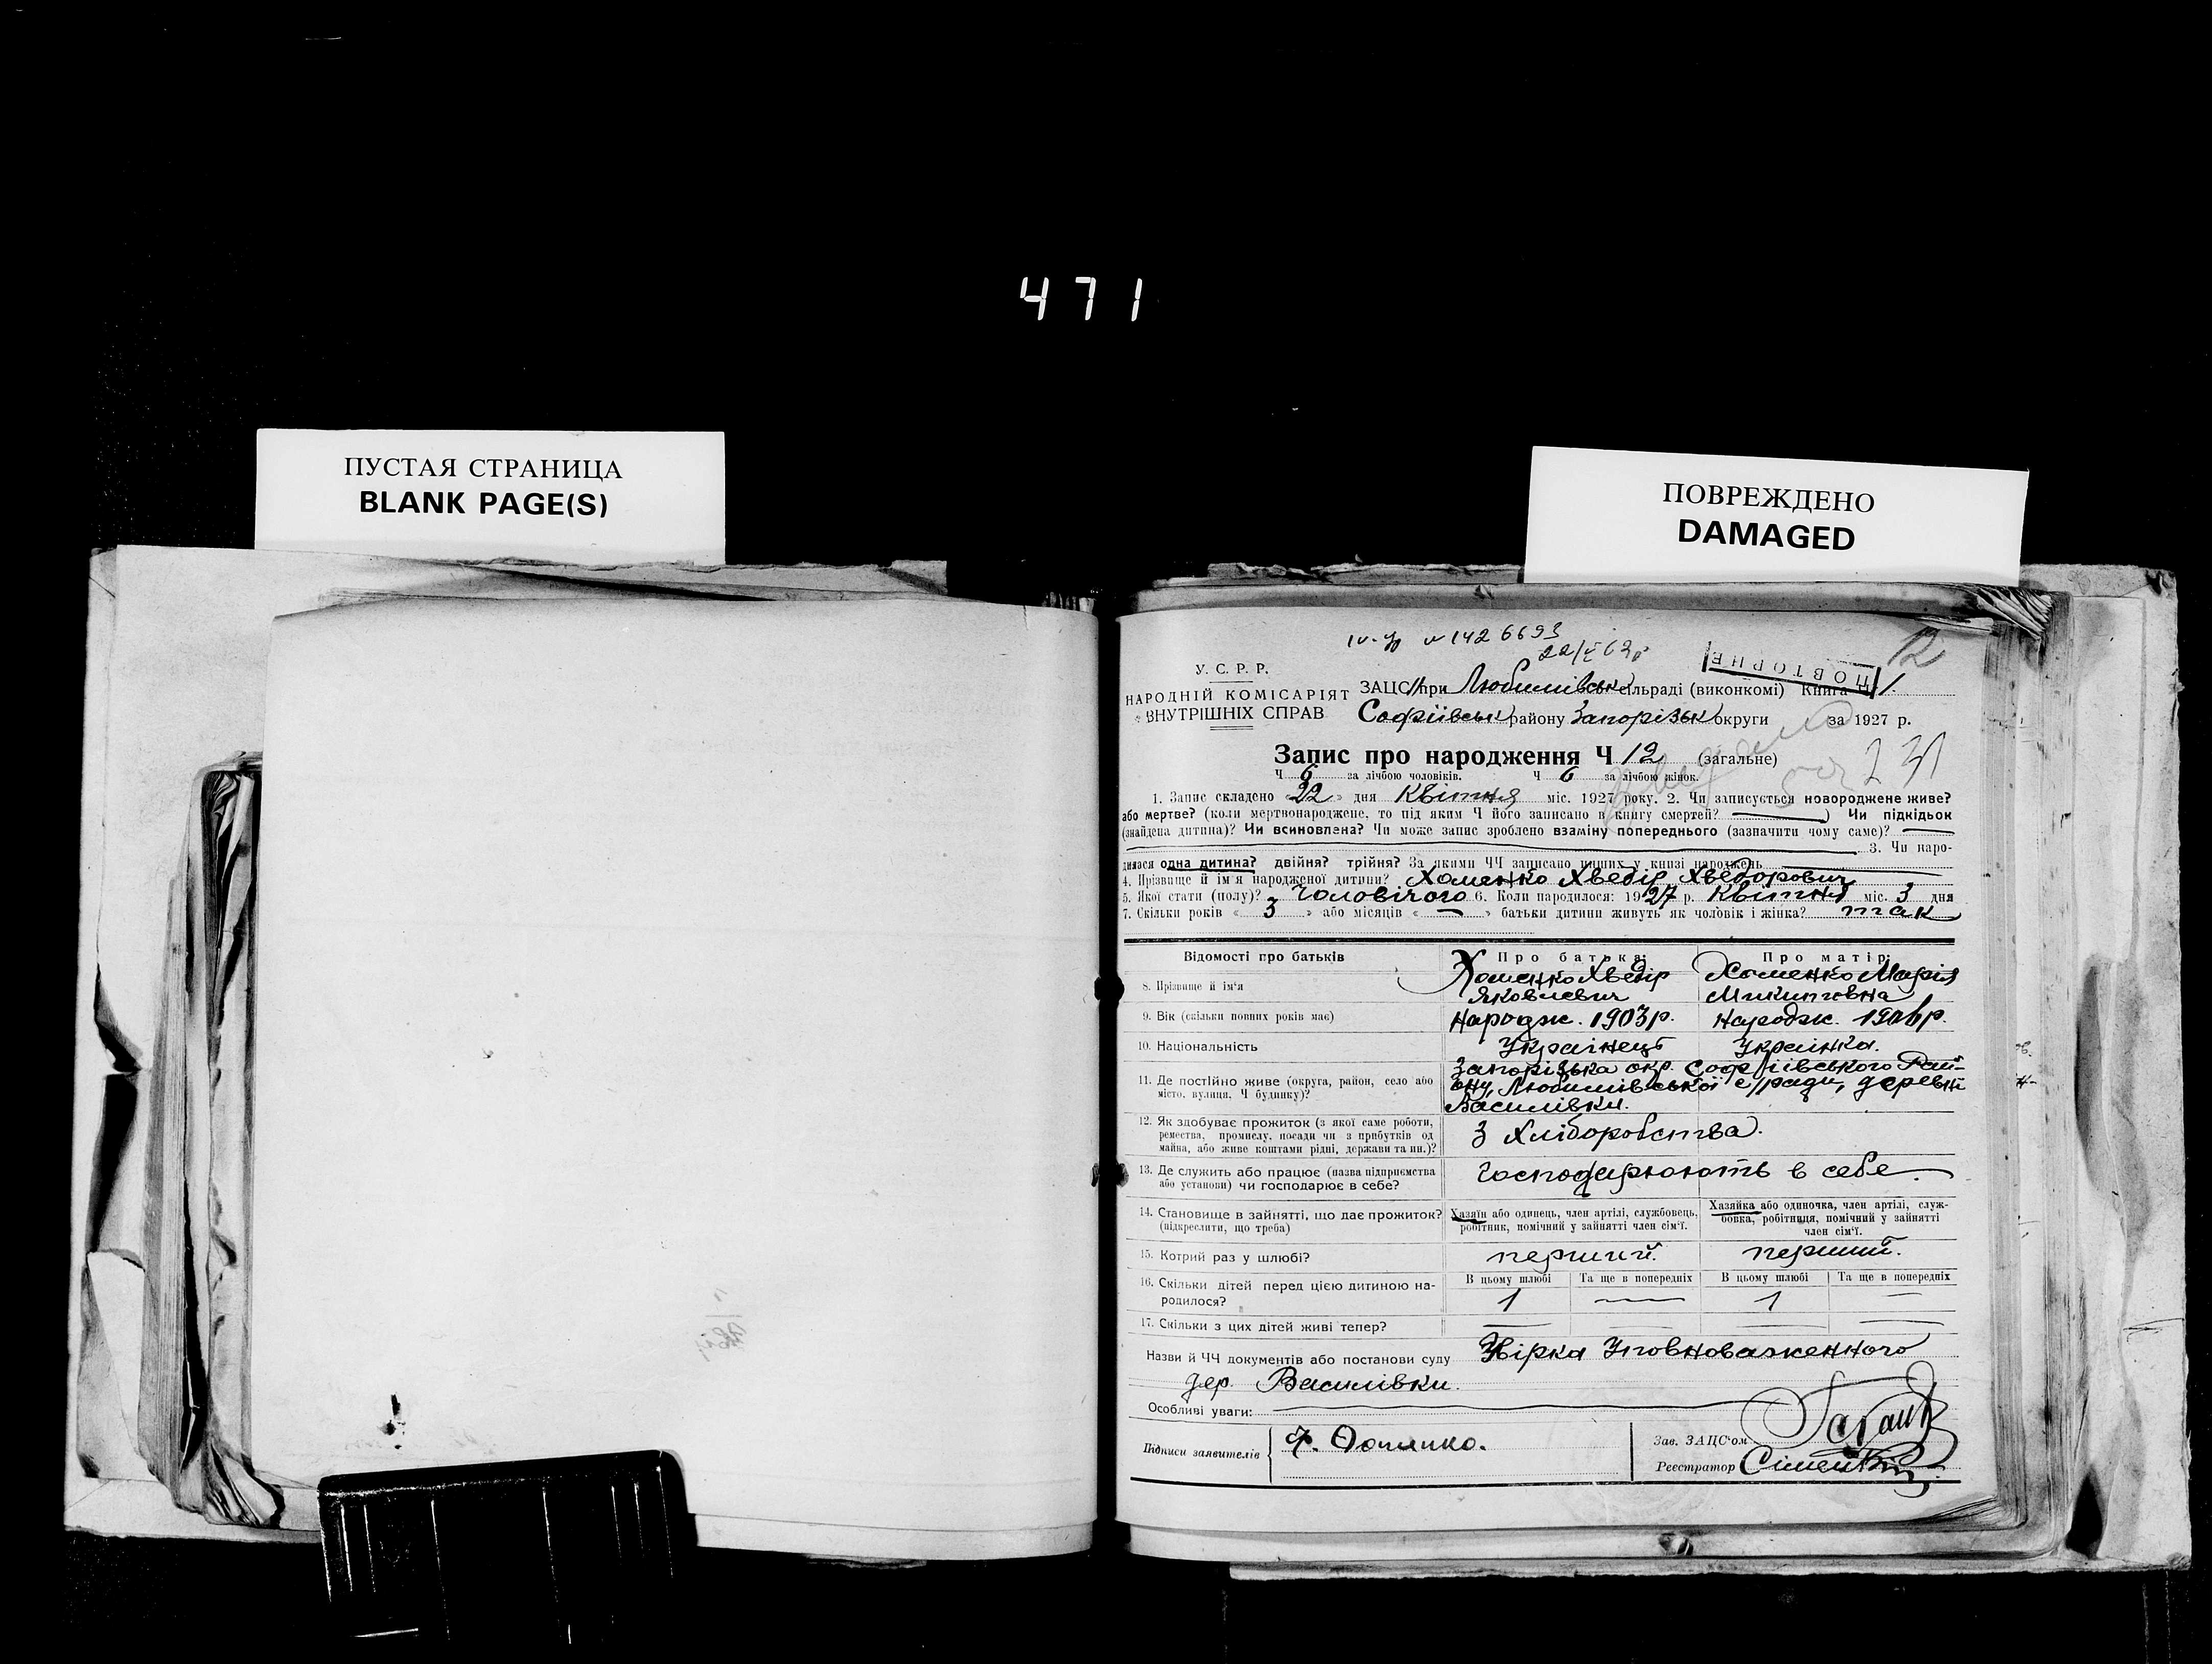 471
ПУСТАЯ СТРАНИЦА
BLANK PAGE(S)
ПОВРЕЖДЕНО
DAMAGED
№ 1426693
12
ПОВТОРНЕ
У. С. Р. Р.
НАРОДНІЙ КОМІСАРІЯТ
ВНУТРІШНІХ СПРАВ
ЗАЦС при Любимівськ сільраді (виконкомі) Книга 1.
Софіївськ району Запорізьк округи за 1927 р.
Запис про народження Ч 12 (загальне)
Ч 6 за лічбою чоловіків. Ч 6 за лічбою жінок.
231
1. Запис складено «22» дня Квітня міс. 1927 року. 2. Чи записується новороджене живе?
або мертве? (коли мертвонароджене, то під яким Ч його записано в книгу смертей? —) Чи підкідьок
(знайдена дитина)? Чи всиновлена? Чи може запис зроблено взаміну попереднього (зазначити чому саме)? —
3. Чи наро-
дилася одна дитина? двійня? трійня? За якими ЧЧ записано инших у книзі народжень —
4. Прізвище й ім'я народженої дитини? Хоменко Хведір Хведорович
5. Якої стати (полу)? Чоловічого 6. Коли народилося: 1927 р. Квітня міс. 3 дня
7. Скільки років «3» або місяців «—» батьки дитини живуть як чоловік і жінка? так
Відомості про батьків Про батька: Про матір:
8. Прізвище й ім'я Хоменко Хведір Яковлевич Хоменко Марія Микитовна
9. Вік (скільки повних років має) Народж. 1903 р. Народж. 1906 р.
10. Національність Українець Українка.
11. Де постійно живе (округа, район, село або
місто, вулиця, Ч будинку)?
Запорізька окр. Софіївського Рай-
ону, Любимівської с/ради, деревні
Василівки.
12. Як здобуває прожиток (з якої саме роботи,
ремества, промислу, посади чи з прибутків од
майна, або живе коштами рідні, держави та ин.)?
З хліборобства.
13. Де служить або працює (назва підприємства
або установи) чи господарює в себе?
Господарюють в себе.
14. Становище в зайнятті, що дає прожиток?
(підкреслити, що треба)
Хазяїн або одинець, член артілі, службовець,
робітник, помічний у зайнятті член сім'ї.
Хазяйка або одиночка, член артілі, служ-
бовка, робітниця, помічний у зайнятті
член сім'ї.
15. Котрий раз у шлюбі? перший. перший.
16. Скільки дітей перед цією дитиною на-
родилося?
В цьому шлюбі Та ще в попередніх В цьому шлюбі Та ще в попередніх
1 — 1 —
17. Скільки з цих дітей живі тепер? — — — —
Назви й ЧЧ документів або постанови суду Звірка Уповноваженного
дер. Василівки.
Особливі уваги: —
Підписи заявителів
Зав. ЗАЦС'ом
Реєстратор